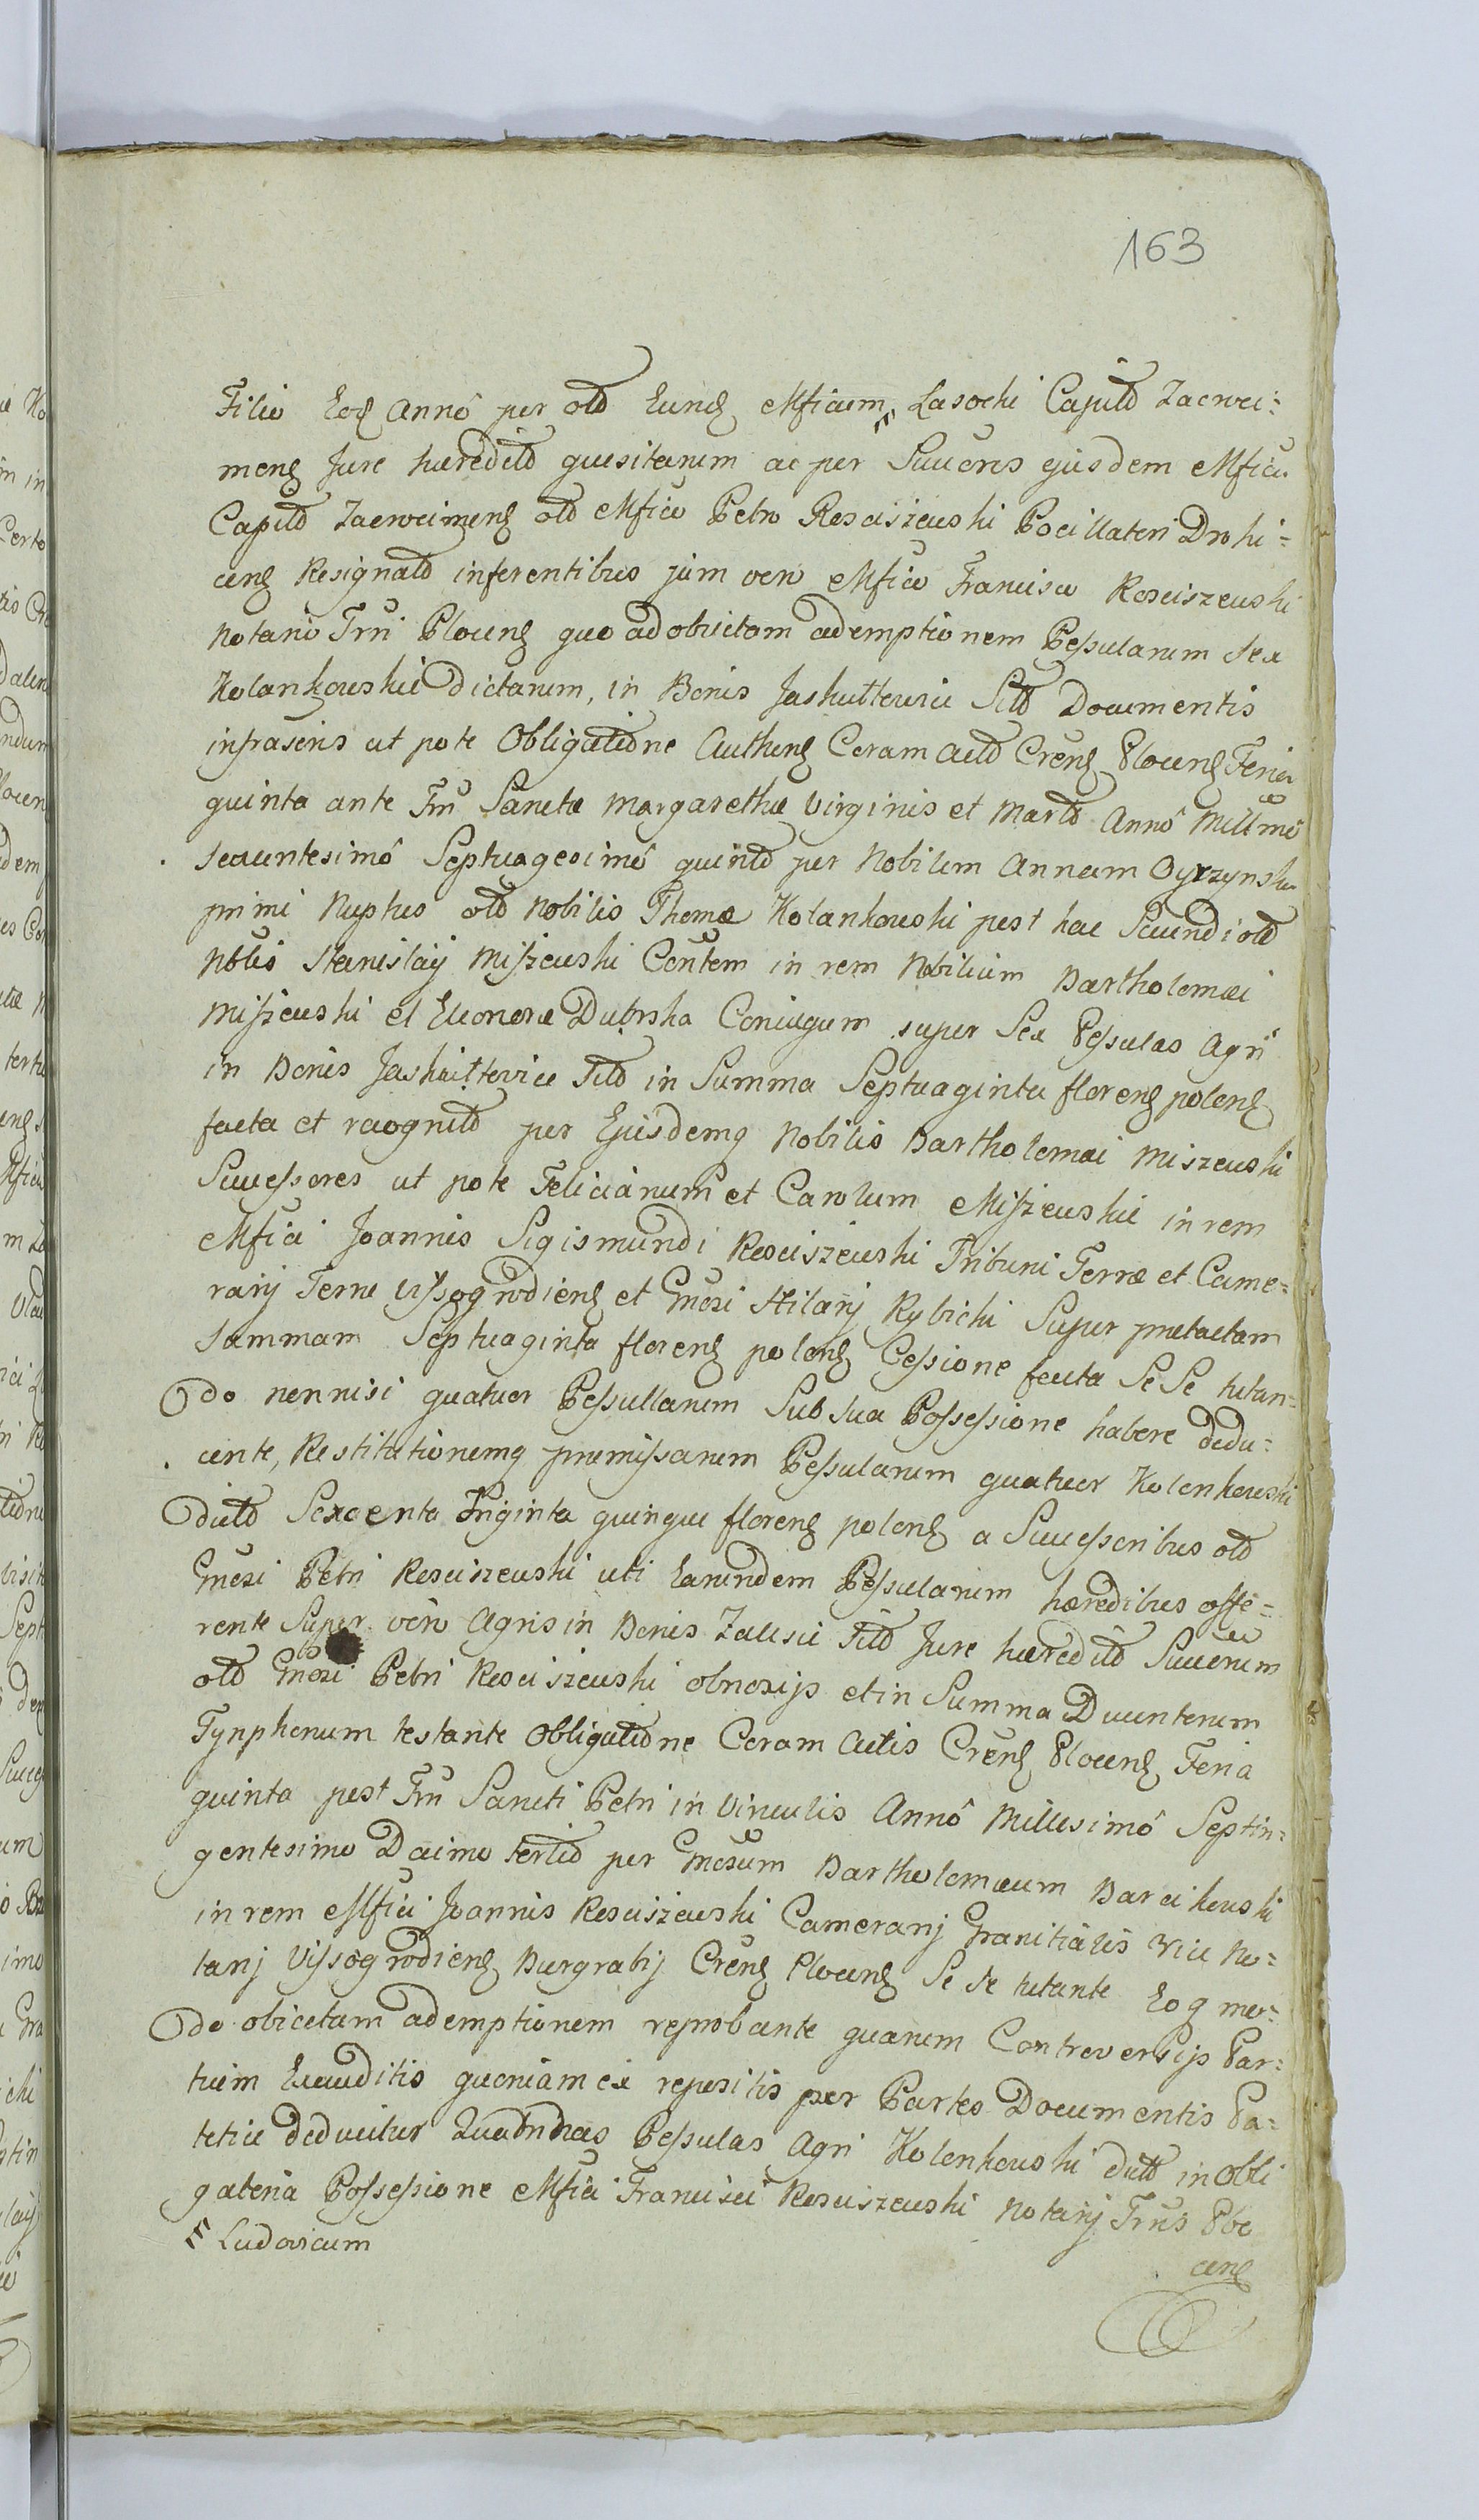 163
Filio Eoq Annô per olð Eunđ Mficum Lasocki Capitð Zacroci=
menş Jure hæreditð quesitarum ac per Succoris ejusdem Mfici
Capitð Zacrocimenş olð Mfico Petro Rosciszewski Pocillatori Drohi=
cenş Resignatð inferentibus jam vero Mfico Francisco Rosciszewski
Notario Trri Plocenş quo ad obiectam ademptionem Pessularum sex
Kolankowskie dictarum, in Bonis Jaskułtowice Sitð Documentis
infraseris ut pote Obligatione Authenş Coram Actð Crenş Plocenş Feria
quinta ante Fm Sanctæ Margarethæ Virginis et Martð Annô Millmô
sexcentesimô Septuagesimô quintô per Nobilem Annam Gyrzynska
primi Nuptus olð Nobilis Thomæ Kolankowski post hac Secundi olð
Nblis Stanislaij Miszewski Contem in rem Nobilium Bartholomæi
Miszewski et Eleonoræ Dubrska Coniugum super Sex Pessulas Agri
in Bonis Jaskułtowice Sitð in Summa Septuaginta florenş polonş
facta et recognitð per Ejusdemq Nobilis Bartholomæi Miszewski
Successores ut pote Felicianum et Carolum Miszewskie in rem
Mfici Joannis Sigismundi Rosciszewski Tribuni Terræ et Came=
rarij Terræ Vissogrodienş et Gnosi Hilarij Rybicki Super prætactam
Summam Septuaginta florenş polonş Cessione facta Se Se tutan=
do nonnisi quatuor Pessullarum Sub sua Possessione habere dedu=
cente, Restitutionemq præmissarum Pessularum quatuor Kolonkowski
dictð Sexcenta Triginta quinque florenş polonş a Successoribus olð
Gnosi Petri Rosciszewski uti Earundem Pessularum hæredibus offe=
rente Super vero Agris in Bonis Zalesie Sitð Jure hæreditð Succorum
olð Gnosi Petri Rosciszewski obnoxijs et in Summa Ducentorum
Tynphonum testante Obligatione Coram Actis Crenş Plocenş Feria
quinta post Fm Sancti Petri in Vinculis Annô Millesimô Septin=
gentesimo Decimo tertio per Gnosum Bartholomæum Barcikowski
in rem Mfici Joannis Rosciszewski Camerarij Granitialis Vice No=
tarij Vissogrodienş Burgrabij Crenş Plocenş Se Se tutante Eoq mo=
do obiectam ademptionem reprobante quarum Controversijs Par=
tium Exauditis quoniam ex repositis per Partes Documentis Pa=
tetice deducitur Quatridas Pessulas Agri Kolonkowski dictð in obli
gatoria Possessione Mfici Francisci Rosciszewski Notarij Trris Plo
Ludovicum
cenş